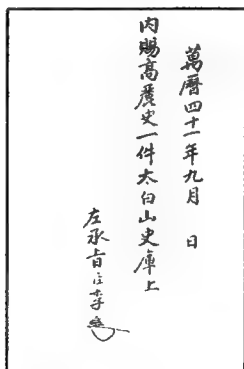 萬曆四十一年九月 日
內賜高麗史一件太白山史庫上
左承旨臣李